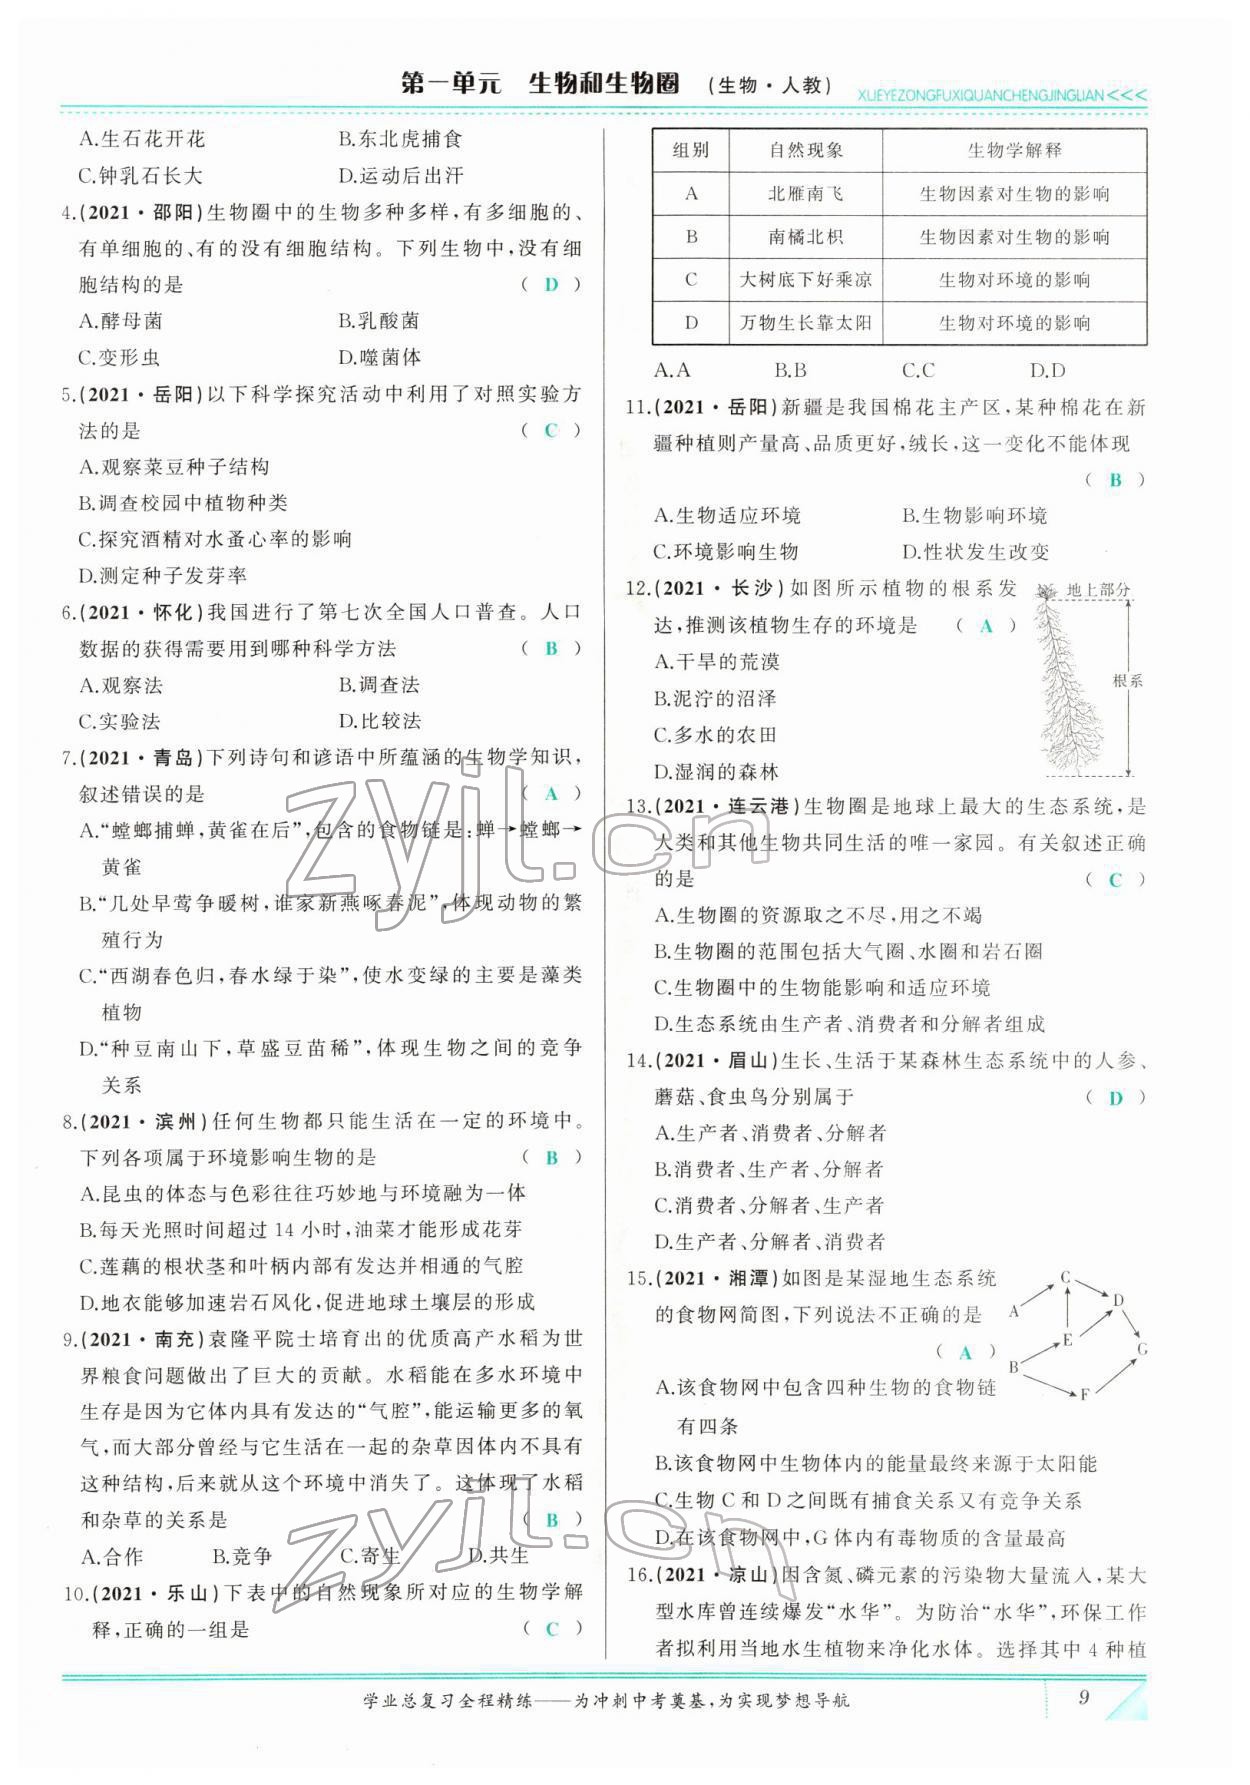 第一单元 生物和生物圈 (生物·人教) XUEYEZONGFUXIQUANCHENGJINGLIAN<<<
A.生石花开花 B.东北虎捕食
C.钟乳石长大 D.运动后出汗
4.(2021·邵阳)生物圈中的生物多种多样,有多细胞的、
有单细胞的、有的没有细胞结构。下列生物中,没有细
胞结构的是 ( D )
A.酵母菌 B.乳酸菌
C.变形虫 D.噬菌体
5.(2021·岳阳)以下科学探究活动中利用了对照实验方
法的是 ( C )
A.观察菜豆种子结构
B.调查校园中植物种类
C.探究酒精对水蚤心率的影响
D.测定种子发芽率
6.(2021·怀化)我国进行了第七次全国人口普查。人口
数据的获得需要用到哪种科学方法 ( B )
A.观察法 B.调查法
C.实验法 D.比较法
7.(2021·青岛)下列诗句和谚语中所蕴涵的生物学知识,
叙述错误的是 ( A )
A.“螳螂捕蝉,黄雀在后”,包含的食物链是:蝉→螳螂→
黄雀
B.“几处早莺争暖树,谁家新燕啄春泥”,体现动物的繁
殖行为
C.“西湖春色归,春水绿于染”,使水变绿的主要是藻类
植物
D.“种豆南山下,草盛豆苗稀”,体现生物之间的竞争
关系
8.(2021·滨州)任何生物都只能生活在一定的环境中。
下列各项属于环境影响生物的是 ( B )
A.昆虫的体态与色彩往往巧妙地与环境融为一体
B.每天光照时间超过 14 小时,油菜才能形成花芽
C.莲藕的根状茎和叶柄内部有发达并相通的气腔
D.地衣能够加速岩石风化,促进地球土壤层的形成
9.(2021·南充)袁隆平院士培育出的优质高产水稻为世
界粮食问题做出了巨大的贡献。水稻能在多水环境中
生存是因为它体内具有发达的“气腔”,能运输更多的氧
气,而大部分曾经与它生活在一起的杂草因体内不具有
这种结构,后来就从这个环境中消失了。这体现了水稻
和杂草的关系是 ( B )
A.合作 B.竞争 C.寄生 D.共生
10.(2021·乐山)下表中的自然现象所对应的生物学解
释,正确的一组是 ( C )
组别 自然现象 生物学解释
A 北雁南飞 生物因素对生物的影响
B 南橘北枳 生物因素对生物的影响
C 大树底下好乘凉 生物对环境的影响
D 万物生长靠太阳 生物对环境的影响
A.A B.B C.C D.D
11.(2021·岳阳)新疆是我国棉花主产区,某种棉花在新
疆种植则产量高、品质更好,绒长,这一变化不能体现
( B )
A.生物适应环境 B.生物影响环境
C.环境影响生物 D.性状发生改变
12.(2021·长沙)如图所示植物的根系发
达,推测该植物生存的环境是 ( A )
A.干旱的荒漠
B.泥泞的沼泽
C.多水的农田
D.湿润的森林
地上部分
根系
13.(2021·连云港)生物圈是地球上最大的生态系统,是
人类和其他生物共同生活的唯一家园。有关叙述正确
的是 ( C )
A.生物圈的资源取之不尽,用之不竭
B.生物圈的范围包括大气圈、水圈和岩石圈
C.生物圈中的生物能影响和适应环境
D.生态系统由生产者、消费者和分解者组成
14.(2021·眉山)生长、生活于某森林生态系统中的人参、
蘑菇、食虫鸟分别属于 ( D )
A.生产者、消费者、分解者
B.消费者、生产者、分解者
C.消费者、分解者、生产者
D.生产者、分解者、消费者
15.(2021·湘潭)如图是某湿地生态系统
的食物网简图,下列说法不正确的是
( A )
A
B
C
D
E
F
G
A.该食物网中包含四种生物的食物链
有四条
B.该食物网中生物体内的能量最终来源于太阳能
C.生物 C 和 D 之间既有捕食关系又有竞争关系
D.在该食物网中,G 体内有毒物质的含量最高
16.(2021·凉山)因含氮、磷元素的污染物大量流入,某大
型水库曾连续爆发“水华”。为防治“水华”,环保工作
者拟利用当地水生植物来净化水体。选择其中 4 种植
学业总复习全程精练——为冲刺中考奠基,为实现梦想导航
9
zyjl.cn
zyjl.cn